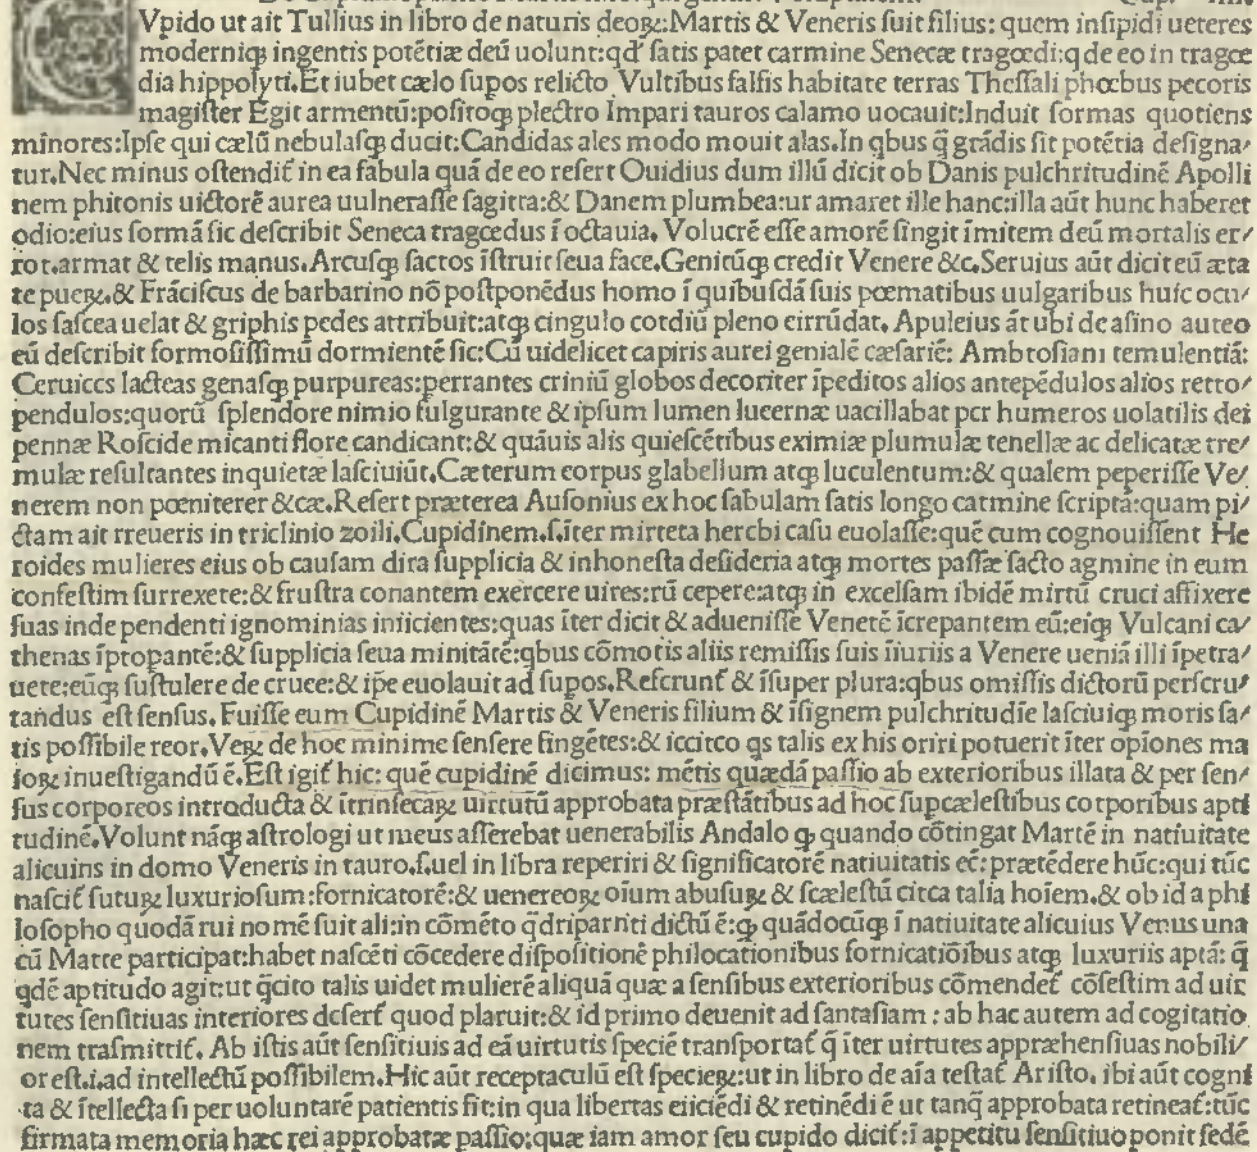 Vpido ut ait Tullius in libro de naturis deoꝝ:Martis & Veneris fuit filius: quem insipidi ueteres
moderniqꝫ ingentis potẽtiæ deũ uolunt:qď satis patet carmine Senecæ tragœdi:q de eo in tragœ
dia hippolyti.Et iubet cælo supos relicto Vultibus falsis habitate terras Thessali phœbus pecoris
magister Egit armentũ:positoqꝫ plectro Impari tauros calamo uocauit:Induit formas quotiens
minores:Ipse qui cælũ nebulasqꝫ ducit:Candidas ales modo mouit alas.In qbus q̃ grãdis sit potẽtia designa/
tur.Nec minus ostendit̃ in ea fabula quã de eo refert Ouidius dum illũ dicit ob Danis pulchritudinẽ Apolli
nem phitonis uictorẽ aurea uulnerasse sagitta:& Danem plumbea:ur amaret ille hanc:illa aũt hunc haberet
odio:eius formã sic describit Seneca tragœdus ĩ octauia. Volucrẽ esse amorẽ fingit ĩmitem deũ mortalis er/
rot.armat & telis manus.Arcusqꝫ factos ĩstruit seua face.Genitũqꝫ credit Venere &c.Seruius aũt dicit eũ æta
te pueꝝ.& Frãciscus de barbarino nõ postponẽdus homo ĩ quibusdã suis pœmatibus uulgaribus huic ocu/
los fascea uelat & griphis pedes attribuit:atqꝫ cingulo cordiũ pleno cirrũdat. Apuleius ãt ubi de asino auteo
eũ describit formosissimũ dormientẽ sic:Cũ uidelicet capiris aurei genialẽ cæsariẽ: Ambrosiani temulentiã:
Ceruiccs lacteas genasqꝫ purpureas:perrantes criniũ globos decoriter ĩpeditos alios antepẽdulos alios retro/
pendulos:quorũ splendore nimio fulgurante & ipsum lumen lucernæ uacillabat pcr humeros uolatilis dei
pennæ Roscide micanti flore candicant:& quãuis alis quiescẽtibus eximiæ plumulæ tenellæ ac delicatæ tre/
mulæ resultantes inquietæ lasciuiũt.Cæterum corpus glabellum atqꝫ luculentum:& qualem peperisse Ve/
nerem non pœniterer &cæ.Refert præterea Ausonius ex hoc fabulam satis longo catmine scriptã:quam pi/
ctam ait rreueris in triclinio zoili.Cupidinem.s.ĩter mirteta hercbi casu euolasse:quẽ cum cognouissent He
roides mulieres eius ob causam dira supplicia & inhonesta desideria atqꝫ mortes passæ facto agmine in eum
confestim surrexete:& frustra conantem exercere uires:rũ cepere:atqꝫ in excelsam ibidẽ mirtũ cruci affixere
suas inde pendenti ignominias iniicientes:quas ĩter dicit & aduenisse Venetẽ ĩcrepantem eũ:eiqꝫ Vulcani ca/
thenas ĩptopantẽ:& supplicia seua minitãtẽ:qbus cõmotis aliis remissis suis ĩiuriis a Venere ueniã illi ĩpetra/
uete:eũqꝫ sustulere de cruce:& ip̃e euolauit ad supos.Referunt̃ & ĩsuper plura:qbus omissis dictorũ perscru/
tandus est sensus. Fuisse eum Cupidinẽ Martis & Veneris filium & ĩsignem pulchritudĩe lasciuiqꝫ moris sa/
tis possibile reor.Veꝝ de hoc minime sensere fingẽtes:& iccitco qs talis ex his oriri potuerit ĩter opĩones ma
ioꝝ inuestigandũ ẽ.Est igit̃ hic: quẽ cupidinẽ dicimus: mẽtis quædã passio ab exterioribus illata & per sen/
sus corporeos introducta & ĩtrinsecaꝝ uirtutũ approbata præstãtibus ad hoc supcælestibus cotporibus apti
tudinẽ.Volunt nãqꝫ astrologi ut meus asserebat uenerabilis Andalo qꝫ quando cõtingat Martẽ in natiuitate
alicuius in domo Veneris in tauro.s.uel in libra reperiri & significatorẽ natiuitatis eẽ: prætẽdere hũc:qui tũc
nascit̃ futuꝝ luxuriosum:fornicatorẽ:& uenereoꝝ oĩum abusuꝝ & scælestũ citca talia hoĩem.& ob id a phi
losopho quodã rui nomẽ fuit ali:in cõmẽto q̃driparriti dictũ ẽ:qꝫ quãdocũqꝫ ĩ natiuitate alicuius Venus una
cũ Matte participat:habet nascẽti cõcedere dispositionẽ philocationibus fornicatiõibus atqꝫ luxuriis aptã: q̃
qdẽ aptitudo agit:ut q̃cito talis uidet mulierẽ aliquã quæ a sensibus exterioribus cõmendet̃ cõfestim ad uir
tutes sensitiuas interiores defert̃ quod placuit:& id primo deuenit ad fantasiam : ab hac autem ad cogitatio
nem trasmittit̃. Ab istis aũt sensitiuis ad eã uirtutis speciẽ transportat̃ q̃ ĩter uirtutes appræhensiuas nobili/
or est.i.ad intellectũ possibilem.Hic aũt receptaculũ est specieꝝ:ut in libro de aĩa testat̃ Aristo. ibi aũt cogni
ta & ĩtellecta si per uoluntarẽ patientis fit:in qua libertas eiiciẽdi & retinẽdi ẽ ut tanq̃ approbata retineat̃:tũc
firmata memoria hæc rei approbatæ passio:quæ iam amor seu cupido dicit̃:ĩ appetitu sensitiuo ponit sedẽ